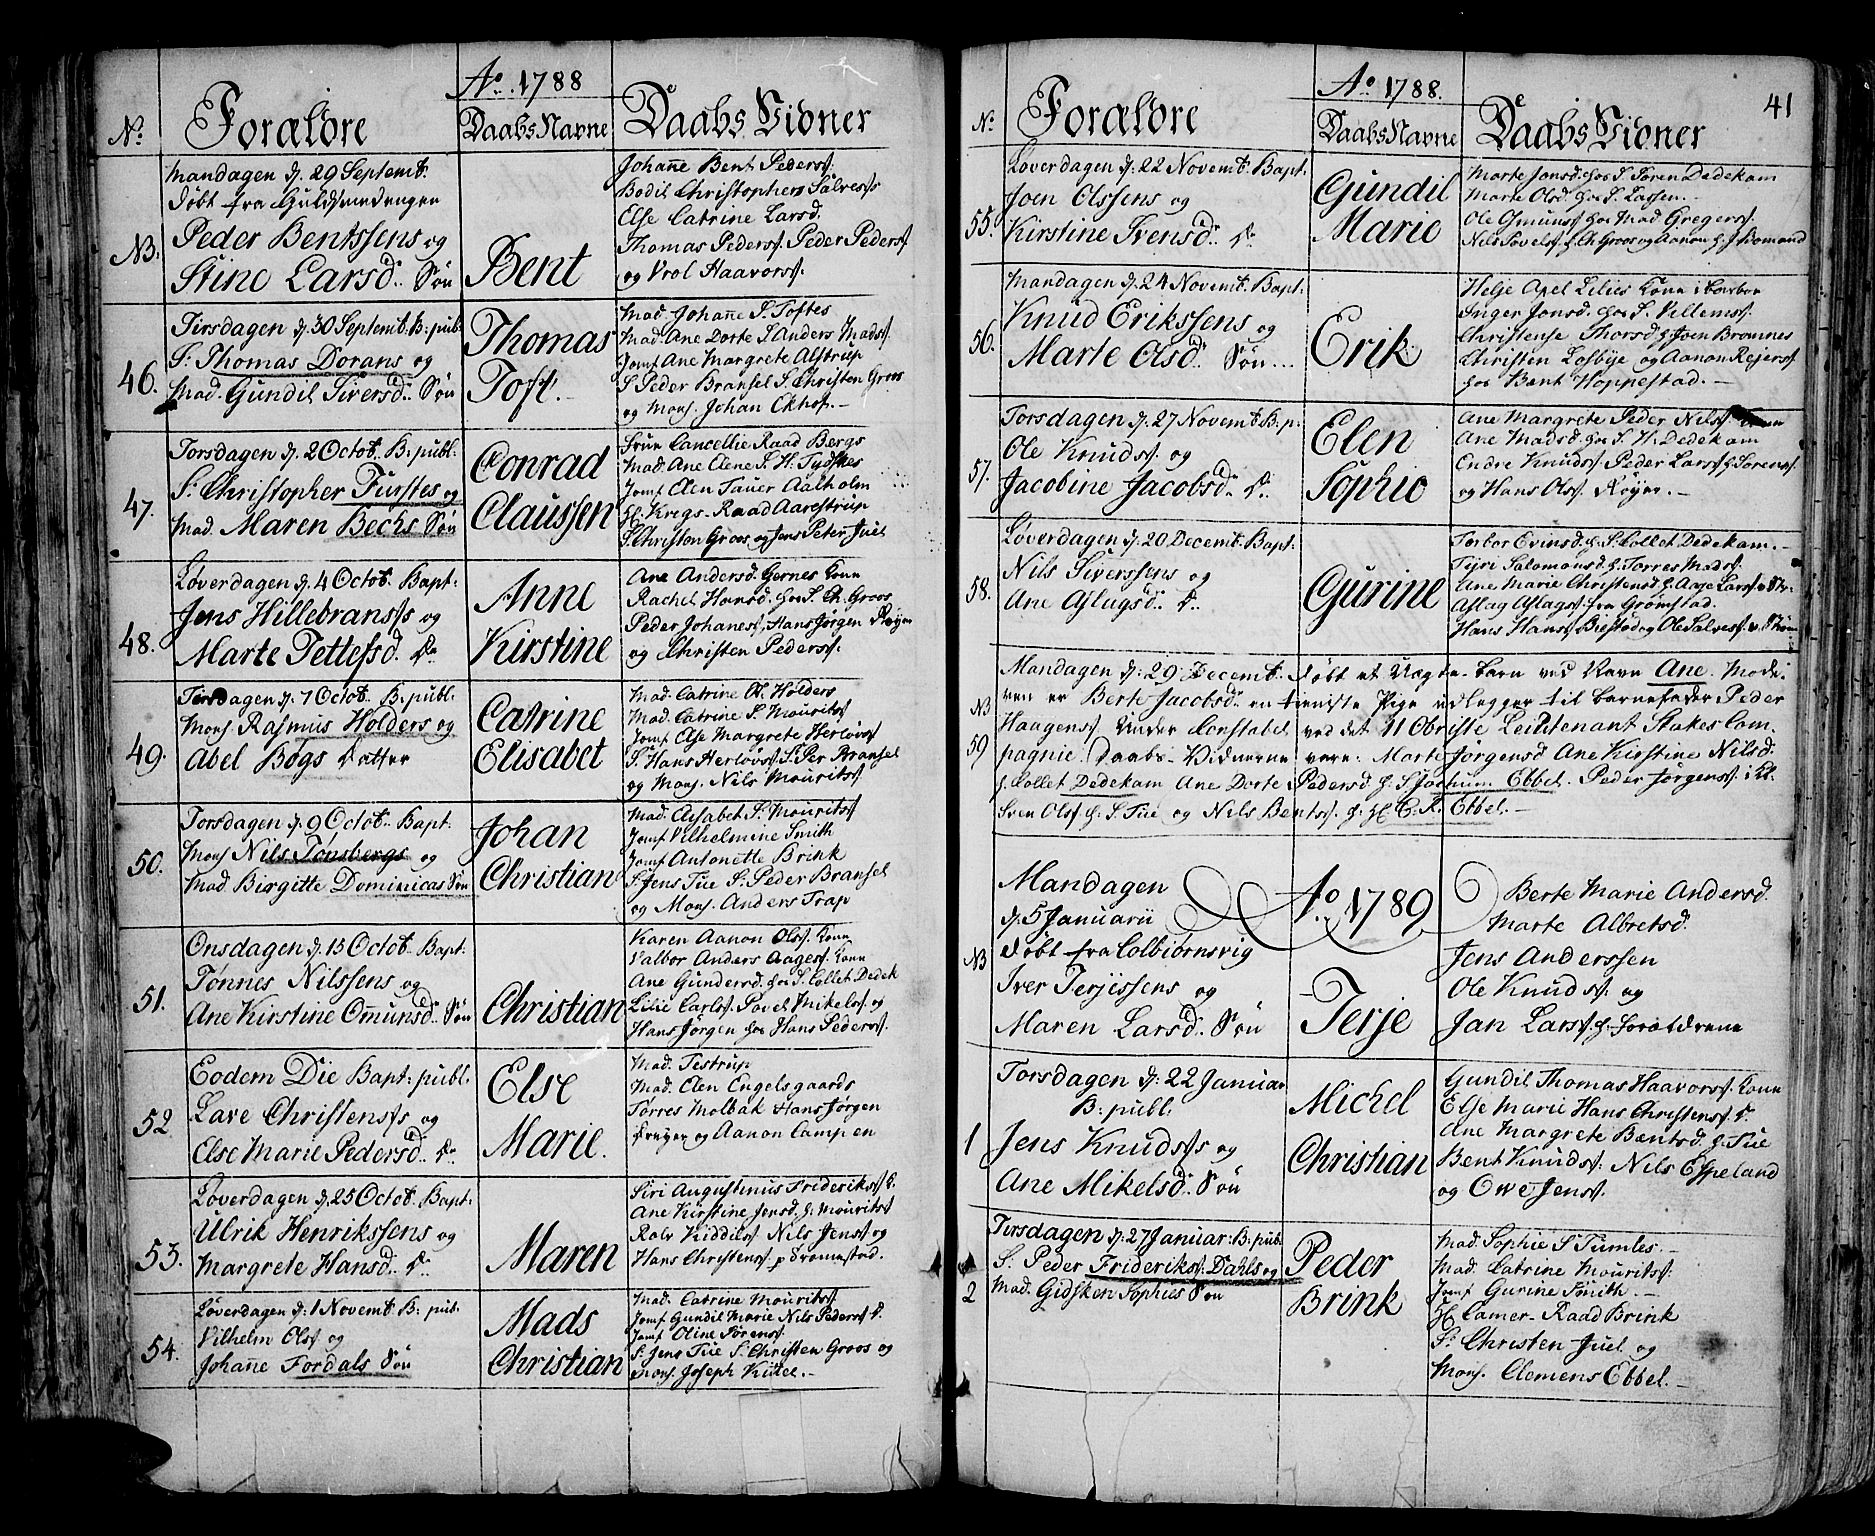 Ao. 1788
No. Forældre Daabs Navne Daabs Vidner
NB.
Mandagen d. 29 Septembt:
Døbt fra Guldsmedengen
Peder Bentssens og
Stine Larsd. Søn
Bent
Johañe Bent Pederss.
Bodil Christophers Salvess
Else Catrine Larsd.
Thomas Pederss. Peder Pederss
og Vrol Haavorss.
46.
Tirsdagen d. 30 Septembt. B: pub:
Sr. Thomas Dorans og
Mad. Gundil Siversd. Søn
Thomas
Toft.
Mad. Johañe S. Toftes
Mad. Ane Dorte S. Anders Madss.
Jomf. Ane Margrete Alstrup
S. Peder Bransel S. Christen Groos
og Mons. Johan Ekhof.
47.
Torsdagen d. 2 Octob. B: publ:
Sr. Christopher Furstes og
Mad. Maren Bechs Søn
Conrad
Claussen
Frue Cancellie Raad Bergs
Mad. Ane Elene S. H. Tydskes
Jomf. Elen Tauer Aalholm
H. Kregs-Raad Aarestrup
S. Christen Groos og Jens Peter Juel
48.
Løverdagen d. 4 Octob. Bapt:
Jens Hillebranss og
Marte Tettefsd. Dr.
Anne
Kirstine
Ane Andersd. Gernes Kone
Rachel Hansd. hos S. Ch. Groos
Peder Johaness, Hans Jørgen Røyer
og Christen Pederss.
49.
Tirsdagen d. 7 Octob. B: publ:
Mons. Rasmus Holders og
Abel Bøgs Datter
Catrine
Elisabet
Mad. Catrine Ol. Holders
Mad. Catrine S. Mouritss
Jomf. Else Margrete Herløvs
S. Hans Herløvs S. Per Bransel
og Mons. Nils Mouritss
50.
Torsdagen d. 9 Octob. Bapt:
Mons. Nils Tønsbergs og
Mad. Birgitte Dominicas Søn
Johan
Christian
Mad. Elisabet S. Mouritss
Jomf. Vilhelmine Smith
Jomf. Antonette Brink
S. Jens Tue S. Peder Bransel
og Mons. Anders Trap
51.
Onsdagen d. 15 Octob. Bapt:
Tønnes Nilssens og
Ane Kirstine Omundsd. Søn
Christian
Karen Aanon Olss. Kone
Valbor Anders Aagess. Kone
Ane Gundersd. hos S. Collet Dedek
Lilie Carlss. Povel Mikelss. og
Hans Jørgen hos Hans Pederss.
52
Eodem Die Bapt: publ.
Lave Christenss og
Else Marie Pedersd. Dr.
Else
Marie.
Mad. Testrup
Mad. Elen Engelsgaards
Tørres Molbak Hans Jørgen
Frøyer og Aanon Campen
53.
Løverdagen d. 25 Octob. Bapt:
Ulrik Henrikssens og
Margrete Hansd. Dr.
Maren
Siri Augustinus Frideriks K.
Ane Kirstine Jensd. h. Mouritss
Rolv Kiddilss Nils Jenss og
Hans Christenss. p Tromøstad.
54.
Løverdagen d. 1 Novembt. B: pub.
Vilhelm Olss og
Johañe Fordals Søn
Mads
Christian
Mad. Catrine Mouritss.
Jomf. Gundil Marie Nils Pederss D.
Jomf. Oline Sørenss.
S. Jens Tue S. Christen Groos og
Mons. Joseph Kidel.
41
Ao 1788.
No. Forældre Daabs Navne Daabs Vidner
55.
Løverdagen d. 22 Novembt. Bapt:
Joen Olssens og
Kirstine Ivensd. Dr.
Gundil
Marie
Marte Jonsd. hos S. Søren Dedekam
Marte Olsd. hos S. Lassen
Ole Osmunss hos Mad. Gregerss.
Nils Povelss h. Ch. Groos og Aanon h.
56.
Mandagen d. 24 Novembt. Bapt:
Knud Erikssens og
Marte Olsd. Søn
Erik
Helje Axel Lilies Kone i Barboe
Inger Jonsd. hos S. Villemss.
Christense Thorsd. h. Joen Bromnes
Christen Losbye og Aanon Rejerss
hos Bænt Hoppestad.
57.
Torsdagen d. 27 Novembt. B: p.
Ole Knudss. og
Jacobine Jacobsd. Dr.
Elen
Sophie
Ane Margrete Peder Nilss. Kone
Ane Madsd. hos S. H. Dedekam
Endre Knudss Peder Larss h. Sørenss.
og Hans Olss. Røyer.
58.
Løverdagen d. 20 Decembt. Bapt:
Nils Siverssens og
Ane Aslagsd. Dr.
Gurine
Torbor Evinsd. h. S. Collet Dedekam.
Tyri Salomonsd. h. Torres Madss.
Ane Marie Christensd. h. Aaje Larss
Aslag Aslagss. fra Grømstad.
Hans Hanss Biestad og Ole Salvess.
NB
59
Mandagen d. 29 Decembt. Døbt et Uægte-Barn ved Navn Ane. Mode-
ren er Berte Jacobsd. en tieniste Pige udlegger til Barnefader Peder
Haagenss Under Constabel ved det 11 Obriste Leiutenant Stakes Com-
pagnie. Daabs-Vidnerne vare: Marte Jørgensd Ane Kirstine Nilsd.
h. Collet Dedekam Ane Dorte Pedersd. h. S. Jochum Ebbel. Peder Jørgenss. i Kl.
Sven Olss h. S. Tue og Nils Bentss. h. H. C. A. Ebbel.
Ao. 1789
NB
Mandagen
d. 5 Januarii
Døbt fra Colbiørnsvig
Iver Terjissens og
Maren Larsd. Søn
Terje
Berte Marie Andersd.
Marte Albretsd.
Jens Anderssen
Ole Knudss. og
Jan Larss. h. Forældrene
1
Torsdagen d: 22 Januar
B: publ.
Jens Knudss og
Ane Mikelsd. Søn
Michel
Christian
Gundil Thomas Haavorss. Kone
Else Marie Hans Christenss. D.
Ane Margrete Bæntsd. h. Tue
Bent Knudss. Nils Espeland
og Owe Jenss.
2
Tirsdagen d. 27 Januar. B: pub.
S. Peder Frideriks. Dahls og
Mad. Gidsken Sophies Søn
Peder
Brink
Mad. Sophie S. Tumles.
Mad. Catrine Mouritss.
Jomf. Gurine Smith.
H. Camer-Raad Brink
Sr. Christen Juel og
Mons. Clemens Ebbel.